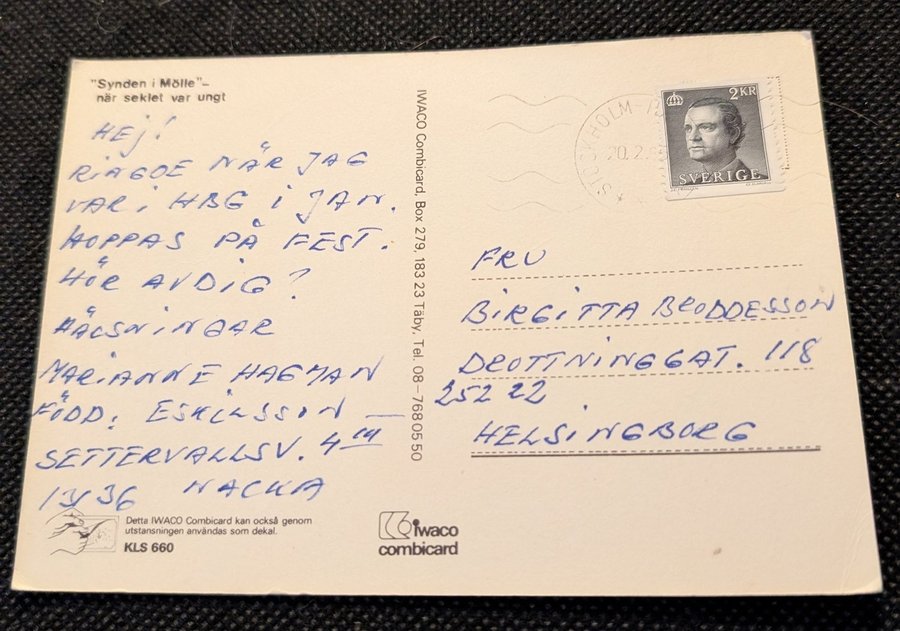 "Synden i Mölle"–
när seklet var ungt
HEJ!
RINGDE NÄR JAG
VAR I HBG I JAN.
HOPPAS PÅ FEST.
HÖR AV DIG?
HÄLSNINGAR
MARIANNE HAGMAN
FÖDD: ESKILSSON —
SETTERVALLSV. 4
13136 NACKA
Detta IWACO Combicard kan också genom
utstansningen användas som dekal.
KLS 660
IWACO Combicard, Box 279, 183 23 Täby. Tel. 08-768 05 50
iwaco
combicard
STOCKHOLM
20.2
2 KR
SVERIGE
FRU
BIRGITTA BRODDESSON
DROTTNINGGAT. 118
252 22
HELSINGBORG